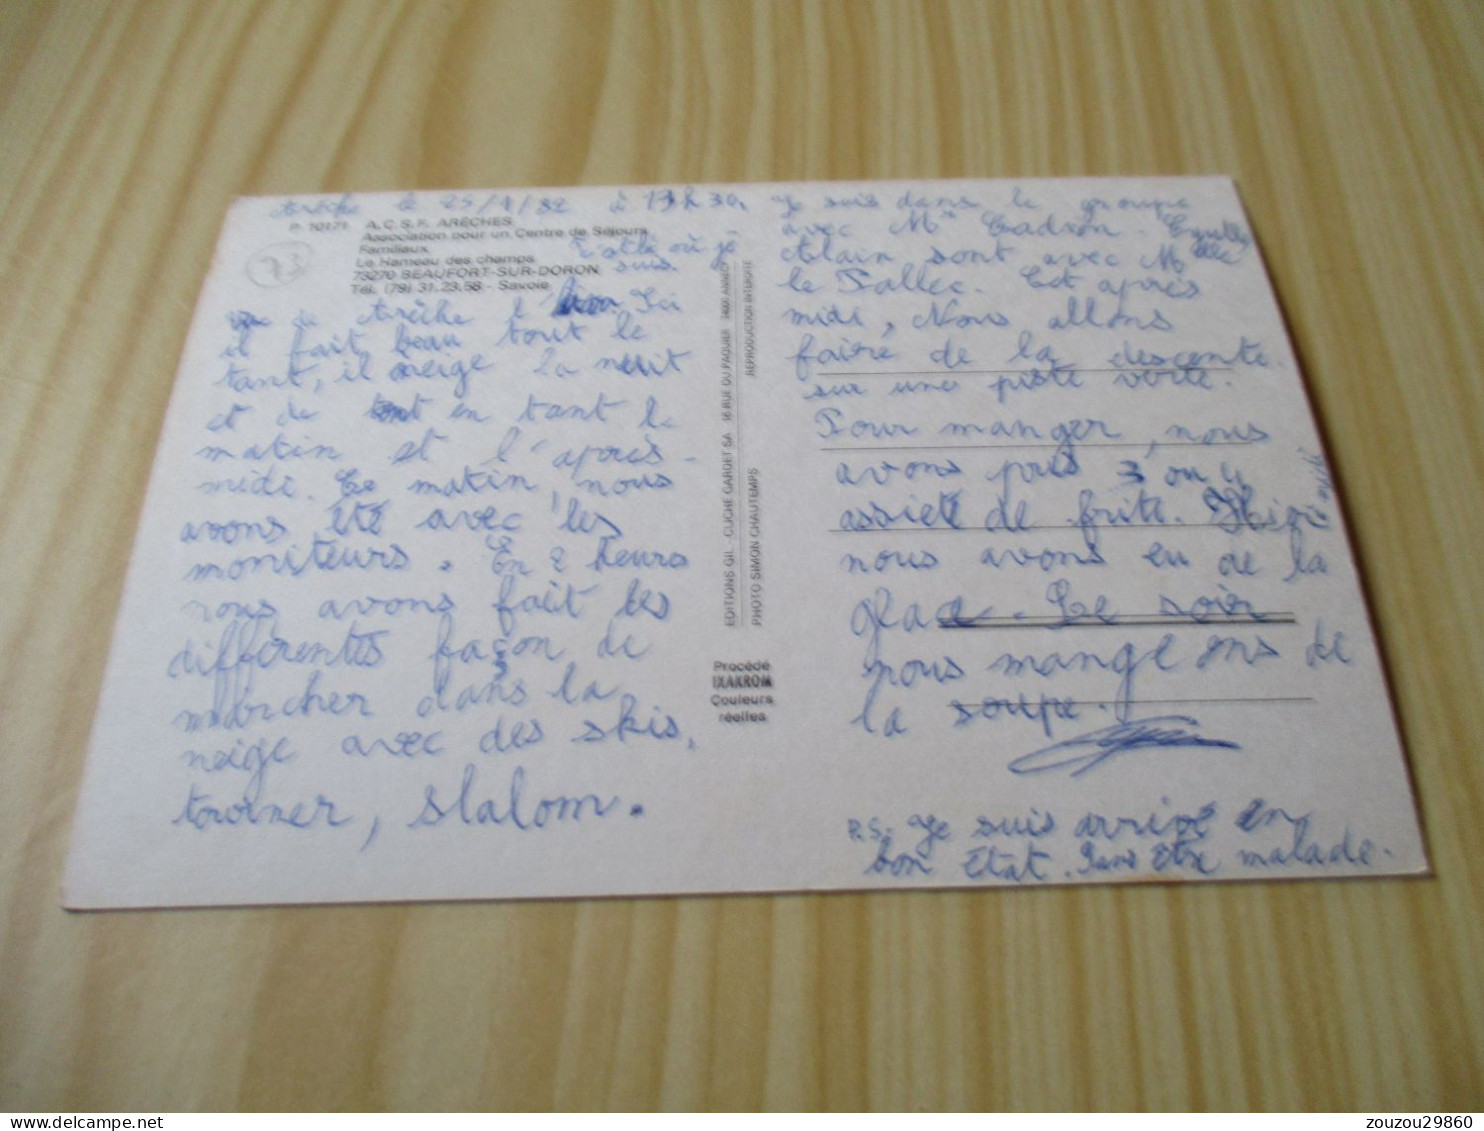 Arêche le 25/1/82 à 13 h 30.
P 10171 A.C.S.F. ARÊCHES
Association pour un Centre de Séjours
Familiaux
Le Hameau des champs
73270 BEAUFORT-SUR-DORON
Tél. (79) 31.23.58 - Savoie
C'est là où je
suis.
73
Arêche Ici
il fait beau tout le
tant, il neige la nuit
et de en tant le
matin et l'après-
midi. Ce matin, nous
avons été avec les
moniteurs. En 2 heures
nous avons fait les
différentes façon de
marcher dans la
neige avec des skis,
tourner, slalom.
EDITIONS GIL - CLICHÉ GARDET SA 16 RUE DU PAQUIER 74000 ANNECY
PHOTO SIMON CHAUTEMPS REPRODUCTION INTERDITE
Procédé
IXAKROM
Couleurs
réelles
Je suis dans le groupe
avec Mr Cadron.
Alain sont avec M
le Fallec. Et après
midi, Nous allons
faire de la descente
sur une piste verte.
Pour manger, nous
avons pris 3 ou 4
assiete de frite.
nous avons eu de la
glace. Le soir
nous mangeons de
la soupe.
P.S. Je suis arrivé en
bon état. Sans être malade.
zouzou29860